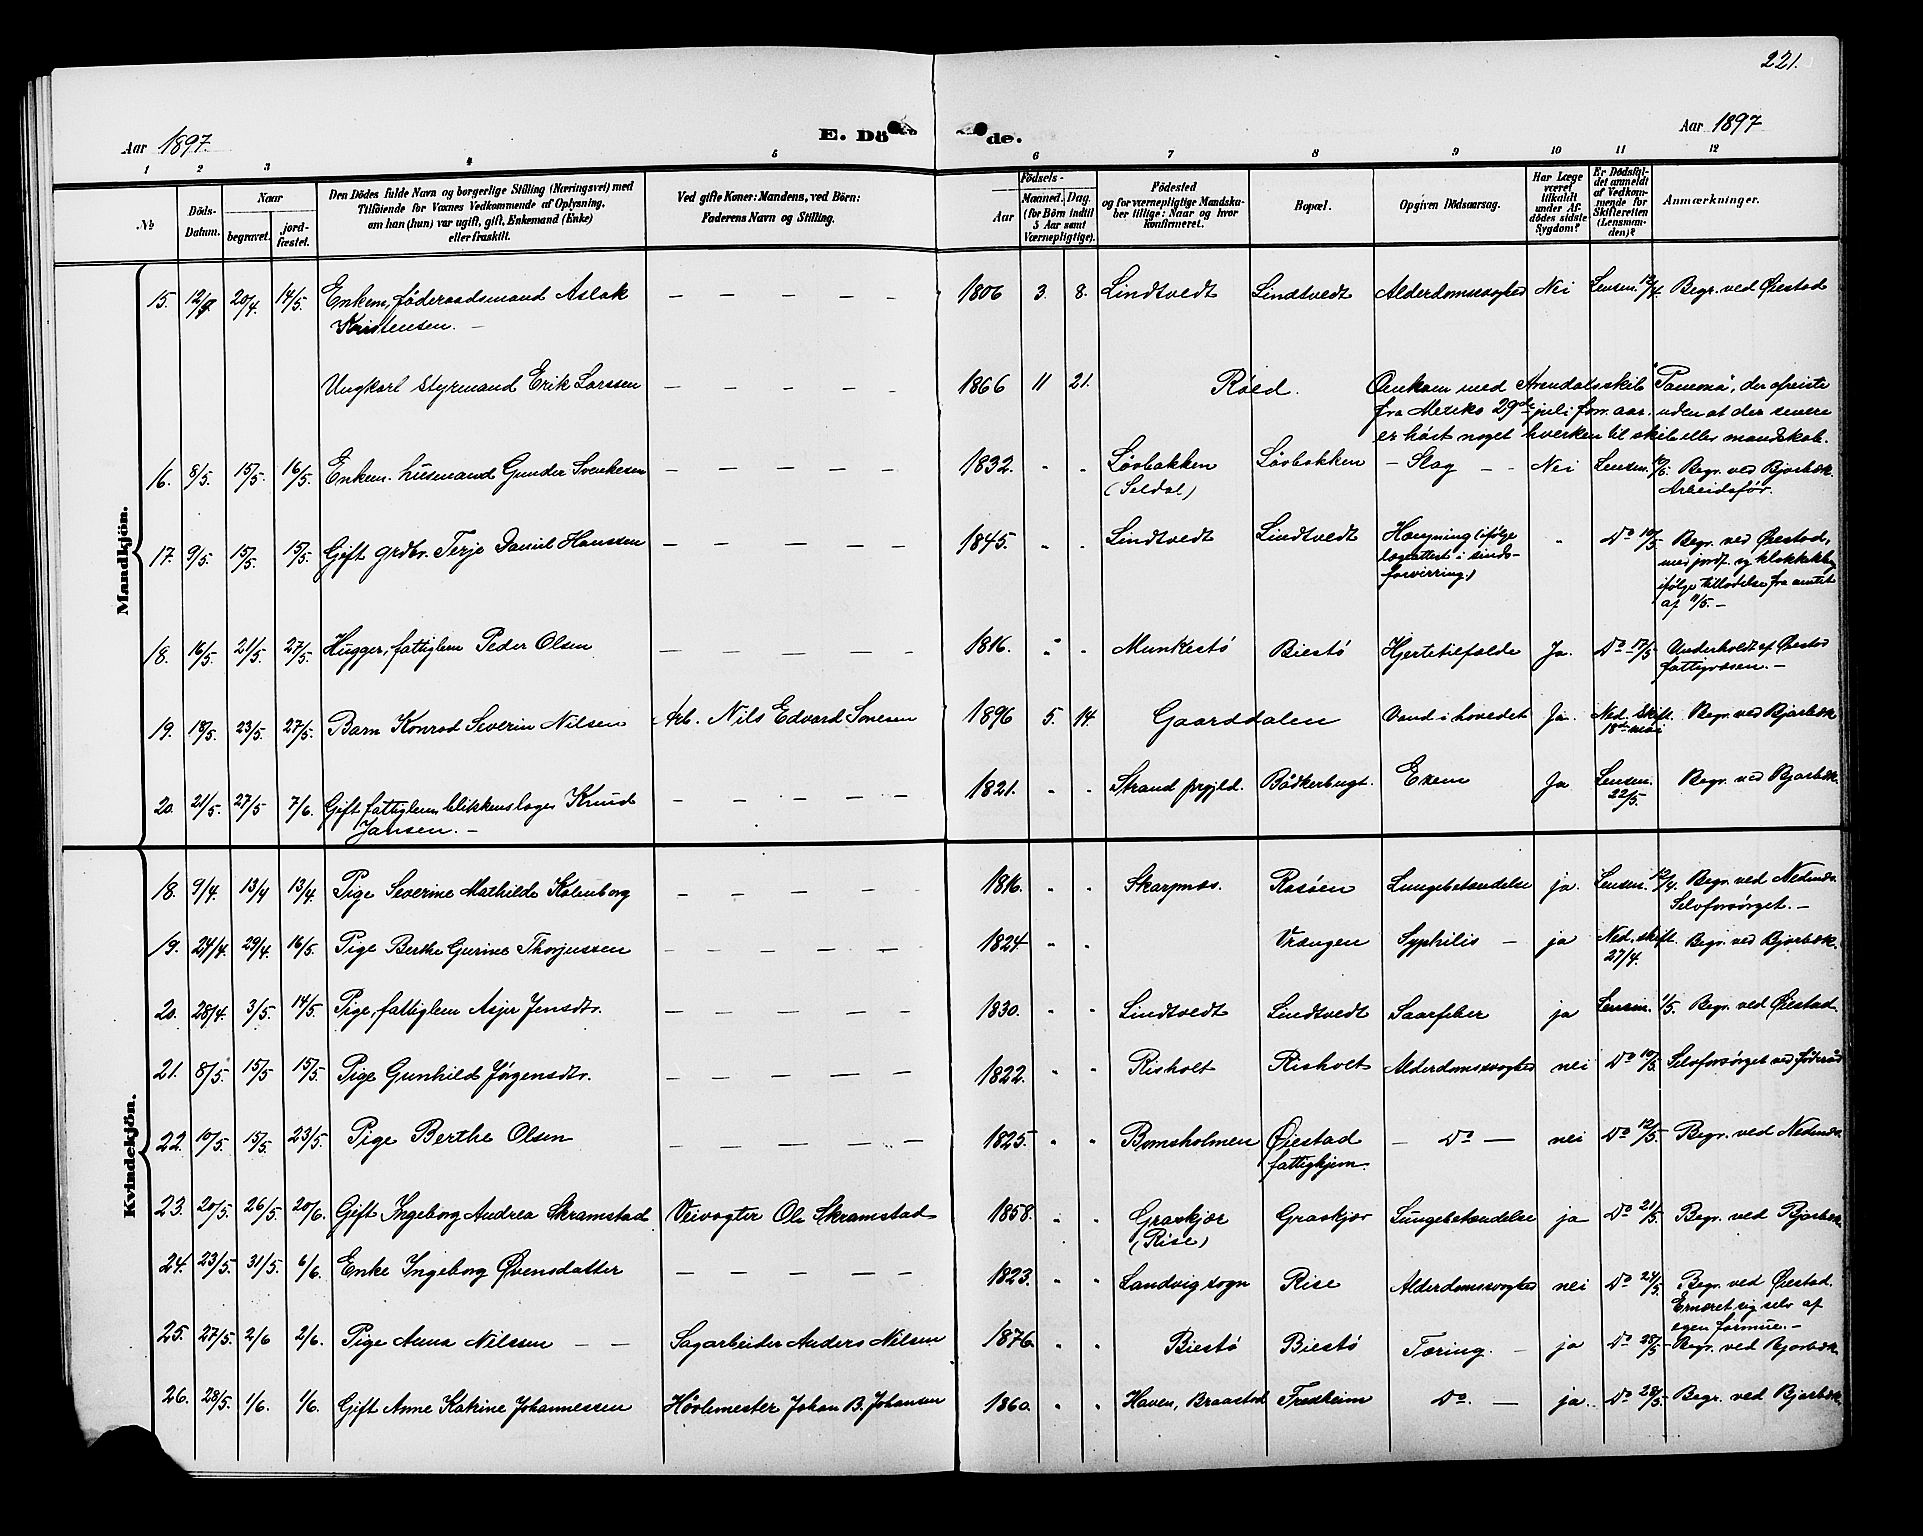 221.
Aar 1897.
E. Dö
de.
Aar 1897
1 2 3 4 5 6 7 8 9 10 11 12
№
Döds-Datum.
Naar
begravet.
jord-fæstet.
Den Dödes fulde Navn og borgerlige Stilling (Næringsvei) med
Tilföiende for Voxnes Vedkommende af Oplysning,
om han (hun) var ugift, gift, Enkemand (Enke)
eller fraskilt.
Ved gifte Koner: Mandens, ved Börn:
Faderens Navn og Stilling.
Födsels-
Aar
Maaned. Dag.
(for Börn indtil
5 Aar samt
Værnepligtige).
Födested
og for værnepligtige Mandska-
ber tillige: Naar og hvor
konfirmeret.
Bopæl.
Opgiven Dödsaarsag.
Har Læge
været
tilkaldt
under Af-
dödes sidste
Sygdom?
Er Dödsfal-
det anmeldt
af Vedkom-
mende for
Skifteretten
(Lensman-
den)?
Anmærkninger.
Mandkjön.
15. 12/4 20/4 14/5 Enkem., föderaadsmand Aslak — — — — — 1806 3. 8. Lindtvedt Lindtvedt Alderdomssvaghed Nei Lensm. 12/4. Begr. ved Øiestad
Kristensen. —
Ungkarl styrmand Erik Larssen — — — — — 1866 11 21. Röed. Omkom med Arendalsskib "Panama", der afreiste
fra Mexiko 29de juli forr. aar. uden at der senere
er hört noget hverken til skib eller mandskab.
16. 8/5. 15/5. 16/5. Enkem. husmand Gunder Svenkesen — — — — — 1832. " " Lövbakken Lövbakken — Slag — — Nei Lensm. 10/5. Begr. ved Bjorbæk.
(Seldal.) Arbeidsför.
17. 9/5. 15/5. 15/5. Gift grdbr. Terje Daniel Hanssen — — — — — 1845. " " Lindtvedt Lindtvedt Hængning (ifölge " Do 10/5. Begr. ved Øiestad,
lægeattest i sinds- med jordf. og
forvirring.) ifölge tilladelse fra amtet
af 11/5. —
18. 16/5. 21/5. 27/5. Hugger, fattiglem Peder Olsen — — — — — 1816. " " Munkestö Biestö Hjertetilfælde Ja. Do 17/5 Underholdt af Øiestad
fattigvæsen. —
19. 18/5. 23/5. 27/5. Barn Konrad Severin Nilsen Arb. Nils Edvard Sørensen 1896 5. 14. Gaarddalen Vand i hovedet Ja. Ned. Skift. Begr. ved Bjorbæk
18de mai
20. 21/5. 27/5 7/6. Gift fattiglem, blikkenslager Knud — — — — — 1821. " " Strand prgjld. Bödkerbugt. Exem Ja Lensm. Begr. ved Bjorbæk.
Jansen. — 22/5.
Kvindekjön.
18. 9/4. 13/4 13/4. Pige Severine Mathilde Kalenborg — — — — — 1816. " " Skarpnæs. Rosöen Lungebetændelse ja. Lensm. 12/4. Begr. ved Nedenæs.
Selvforsörget. —
19. 24/4. 29/4. 16/5. Pige Berthe Gurine Thorjussen — — — — — 1824 " " Vrængen Syphilis — ja Ned. skift. Begr. ved Bjorbæk.
27/4.
20. 28/4. 3/5. 14/5. Pige, fattiglem Asjer Jensdtr. — — — — — 1830. " " Lindtvedt Lindtvedt Saarfeber ja Lensm. 1/5. Begr. ved Øiestad.
21. 8/5. 15/5 15/5. Pige Gunhild Jörgensdtr. — — — — — 1822. " " Risholt Risholt Alderdomssvaghed nei Do 10/5. Selvforsörget ved föderåd
22. 10/5. 15/5. 23/5. Pige Berthe Olsen — — — — — 1825. " " Bomsholmen Øiestad — Do — nei Do 12/5. Begr. ved Nedenæs.
fattighjem.
23. 20/5. 26/5. 20/6. Gift Ingeborg Andrea Skramstad. Veivogter Ole Skramstad 1858. " " Graskjær Graskjær Lungebetændelse ja Do 21/5. Begr. ved Bjorbæk.
(Rise)
24. 23/5. 31/5. 6/6. Enke Ingeborg Øvensdatter — — — — — 1823. " " Landvig sogn Rise Alderdomssvaghed nei Do 24/5. Begr. ved Øiestad.
Ernæret sig selv af
egen formue. —
25. 27/5. 2/6 2/6. Pige Anna Nilssen — — Sagarbeider Anders Nilsen 1876. " " Biestö Biestö Tæring. — ja Do 28/5 — Begr. ved Bjorbæk.
26. 28/5. 1/6. 1/6. Gift Anne Katrine Johannessen Hövlemester Johan B. Johansen 1860. " " Haven, Braastad Fredheim Do. — ja. Do 28/5. Begr. ved Bjorbæk.